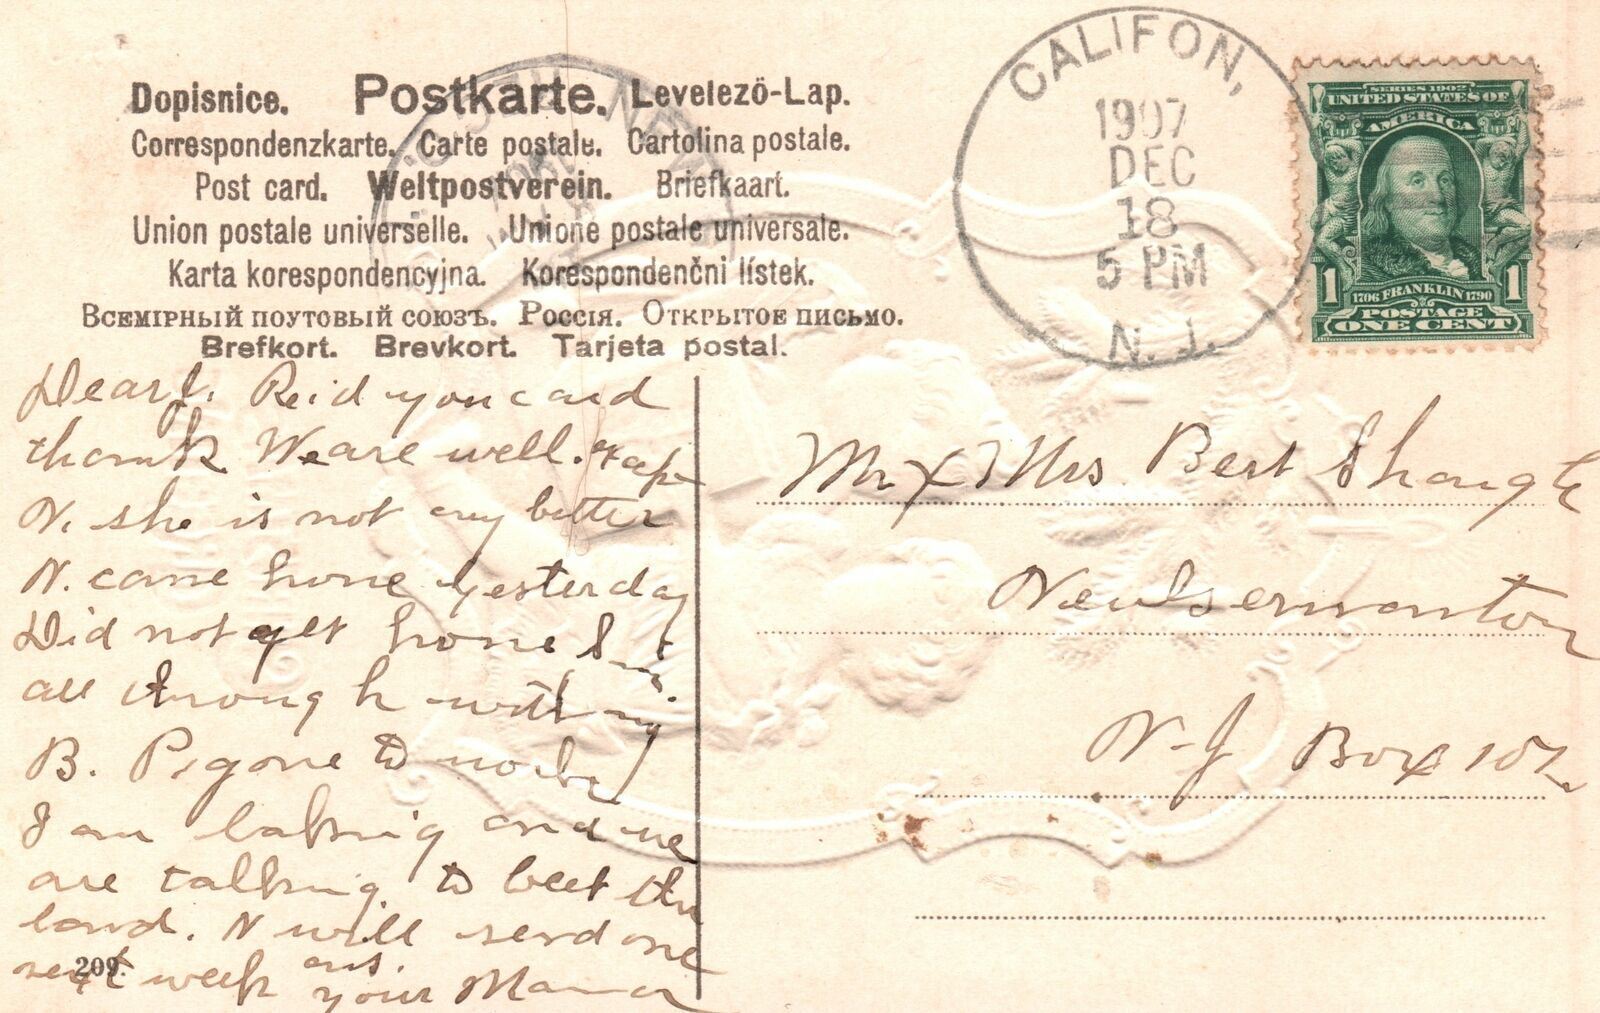 Dopisnice. Postkarte. Levelezö-Lap.
Correspondenzkarte. Carte postale. Cartolina postale.
Post card. Weltpostverein. Briefkaart.
Union postale universelle. Unione postale universale.
Karta korespondencyjna. Korespondenčni lístek.
Всемірный поутовый союзъ. Россія. Открытое письмо.
Brefkort. Brevkort. Tarjeta postal.
CALIFON,
1907
DEC
18
5 PM
N. J.
SERIES 1902
UNITED STATES OF
AMERICA
1 1706 FRANKLIN 1790 1
POSTAGE
ONE CENT
REC'D. NEW
Reid you card
thank We are well.
N. she is not any better
N. came home yesterday
Did not get home but
all through with my
B. gone to work
I am baking and we
are talking to beet the
band. N will send one
next week ans. your Mama
209.
Mr & Mrs. Bert
N-J Box 102